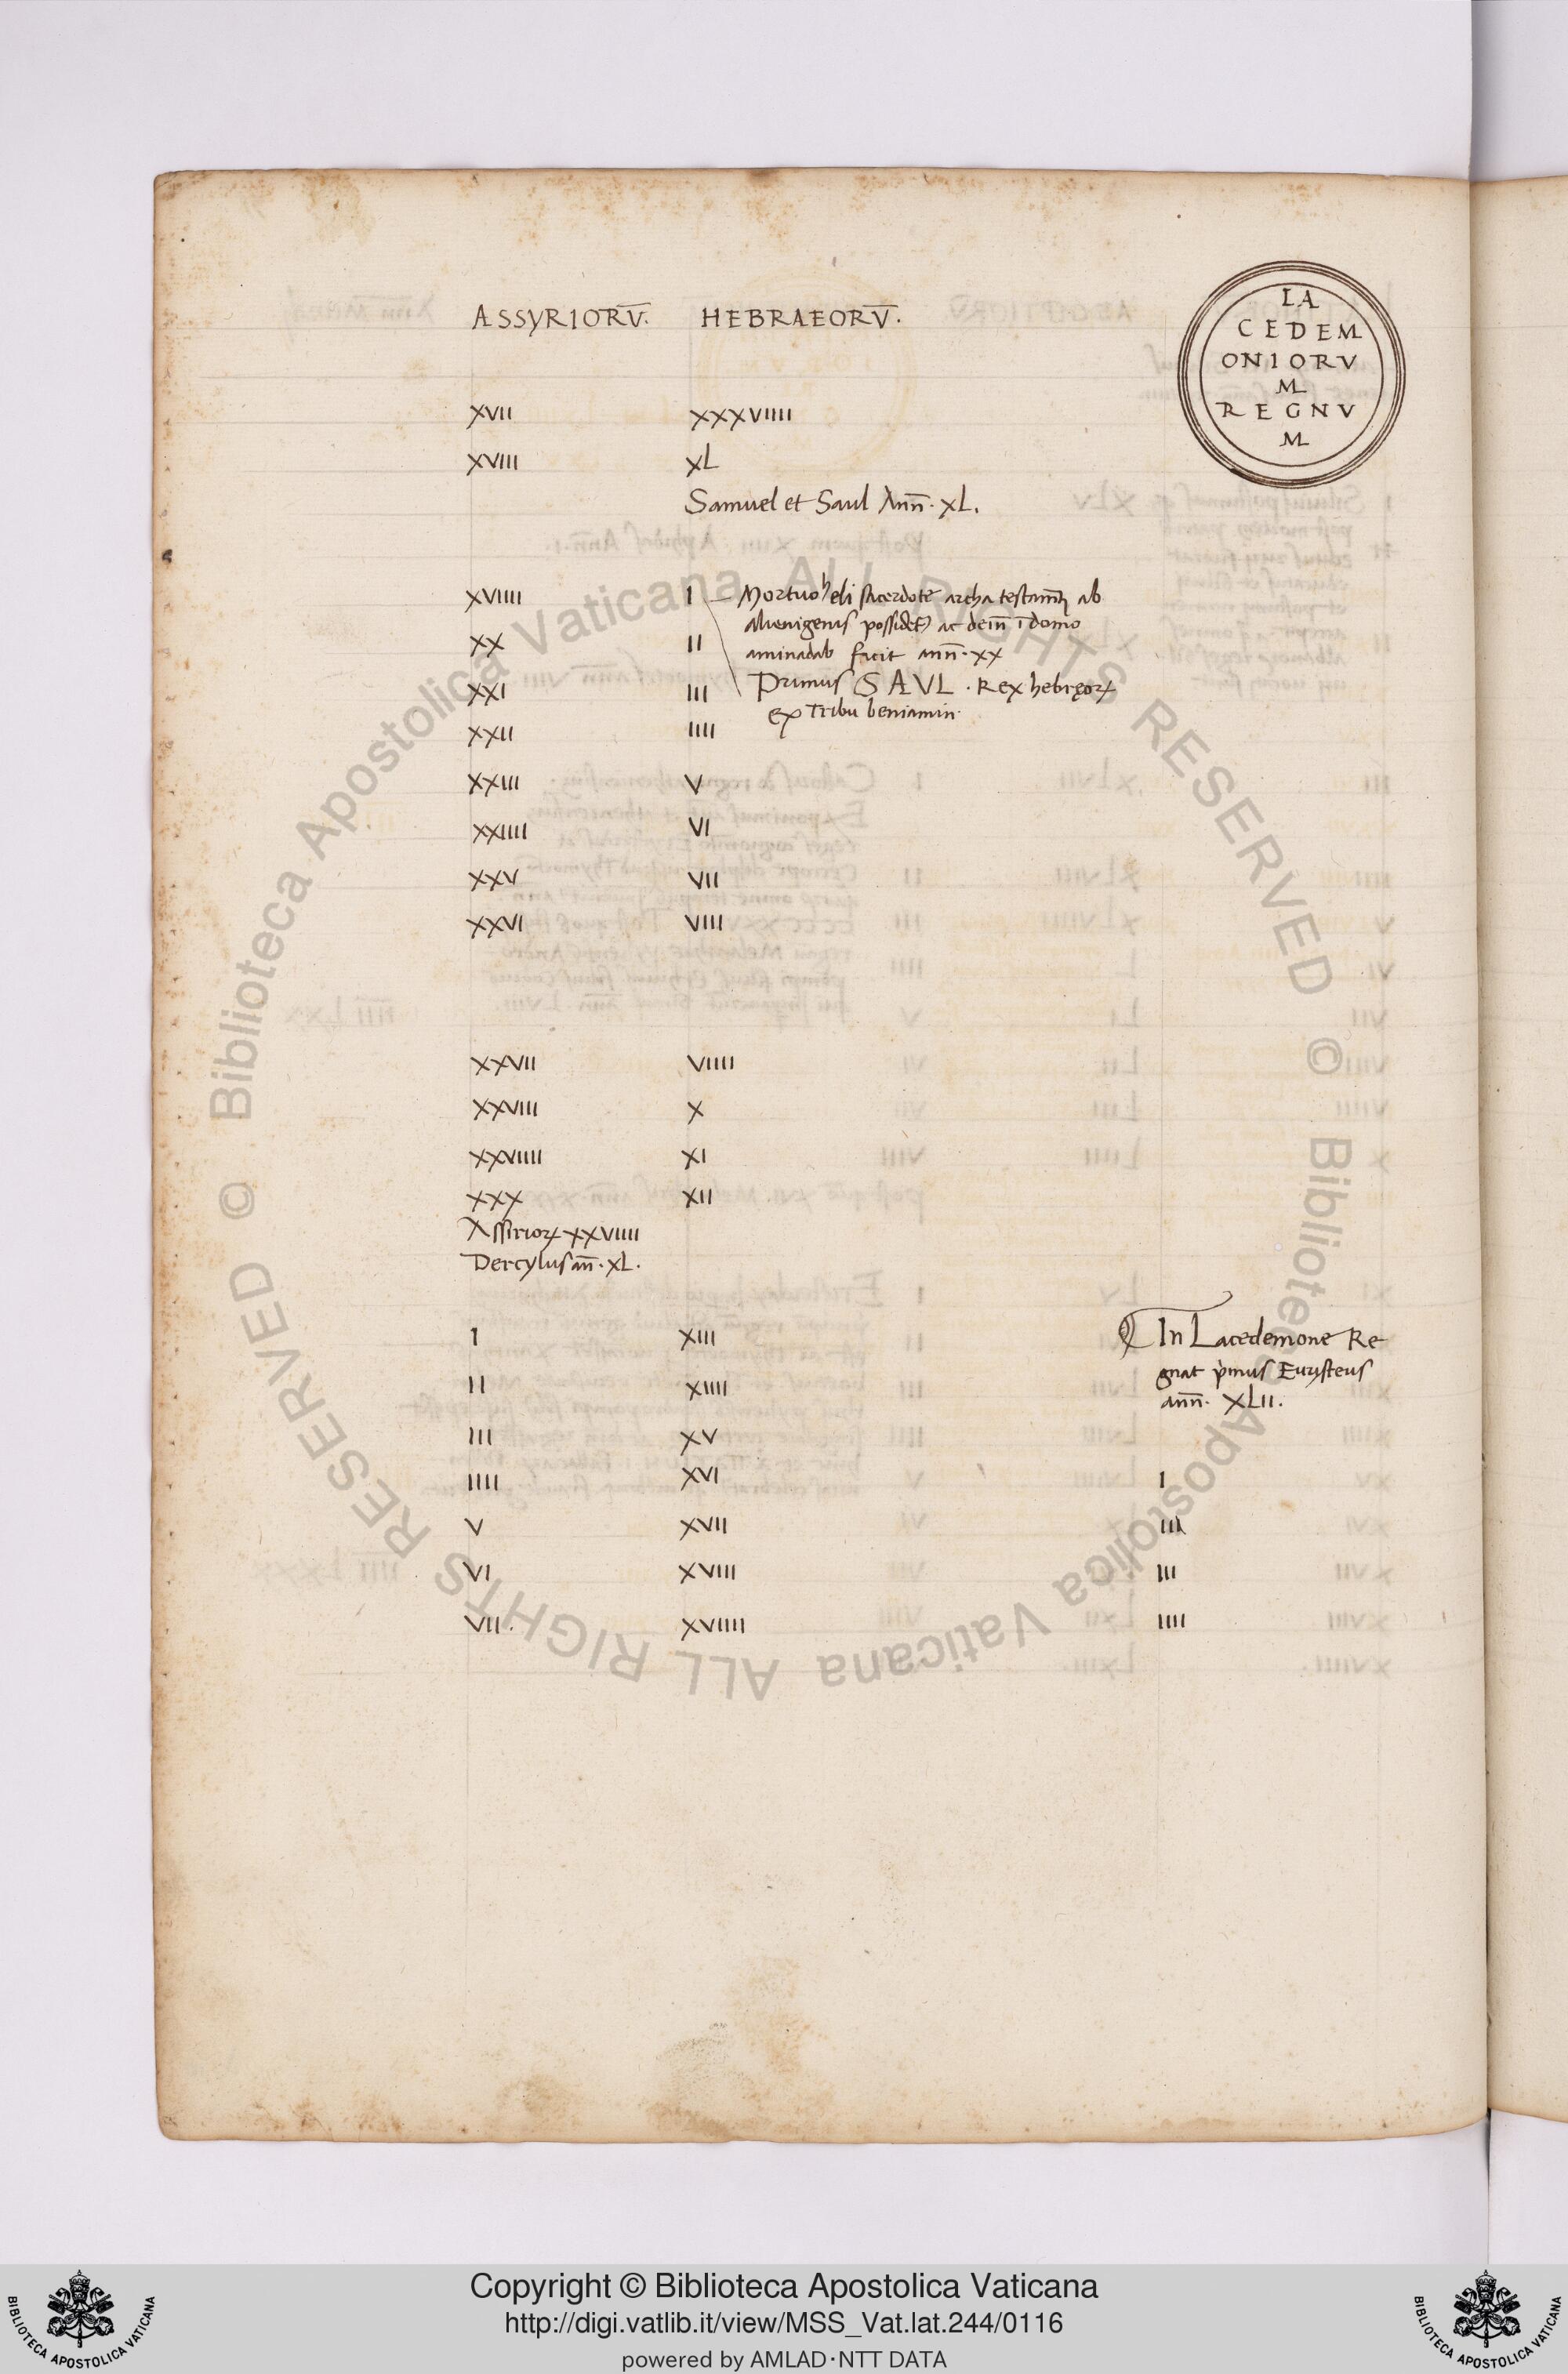 ASSYRIORV̄. HEBRAEORV̄.
LA
CEDEM
ONIORV
M
REGNV
M
XVII XXXVIIII
XVIII XL
Samuel et Saul Ann̄. XL.
XVIIII I Mortuo heli sacerdote archa testam̄ti ab
alienigenis possidet᷑ ac dein̄ ī domo
XX II aminadab facit ann̄. XX
XXI III Primus SAVL. Rex hebręoꝝ
ex Tribu beniamin.
XXII IIII
XXIII V
XXIIII VI
XXV VII
XXVI VIII
XXVII VIIII
XXVIII X
XXVIIII XI
XXX XII
Assirioꝝ XXVIIII
Dercylus an̄. XL.
I XIII In Lacedemone Re-
gnat pͥmus Euristeus
II XIIII ann̄. XLII.
III XV
IIII XVI I
V XVII III
VI XVIII III
VII. XVIIII IIII
© Biblioteca Apostolica Vaticana ALL RIGHTS RESERVED © Biblioteca Apostolica Vaticana ALL RIGHTS RESERVED
Copyright © Biblioteca Apostolica Vaticana
http://digi.vatlib.it/view/MSS_Vat.lat.244/0116
powered by AMLAD·NTT DATA
BIBLIOTECA APOSTOLICA VATICANA
BIBLIOTECA APOSTOLICA VATICANA